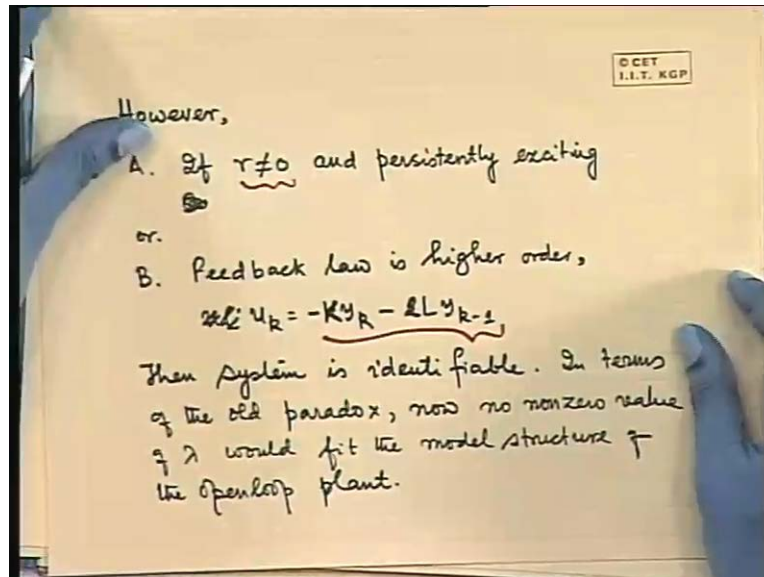 © CET
I.I.T. KGP
However,
A. If r≠0 and persistently exciting
or.
B. Feedback law is higher order,
u_k = -K y_k - L y_{k-1},
Then system is identifiable. In terms
of the old paradox, now no nonzero value
of λ would fit the model structure of
the openloop plant.